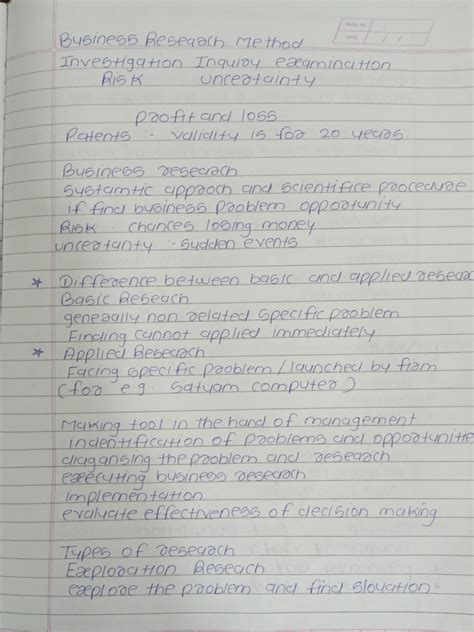 PAGE NO.
DATE / /
Business Reseqach Method
Investigation Inquiry examination
Risk uncertainty
Profit and loss
Patents :- validity is for 20 years
Business research
systamtic approch and scientifice procedure
if find business problem opportunity
Risk - chances losing money
uncertanty - sudden events
* Difference between basic and applied resear
Basic Reseach
generally non related specific problem
Finding cannot applied immediately
* Applied Research
Facing specific problem / launched by firm
(for e.g. Satyam computer)
Making tool in the hand of management
indentification of problems and opportunitie
diagansing the problem and research
executing business research
implementation
evaluate effectiveness of decision making
Types of research
Exploration Reseach
explore the problem and find slovation